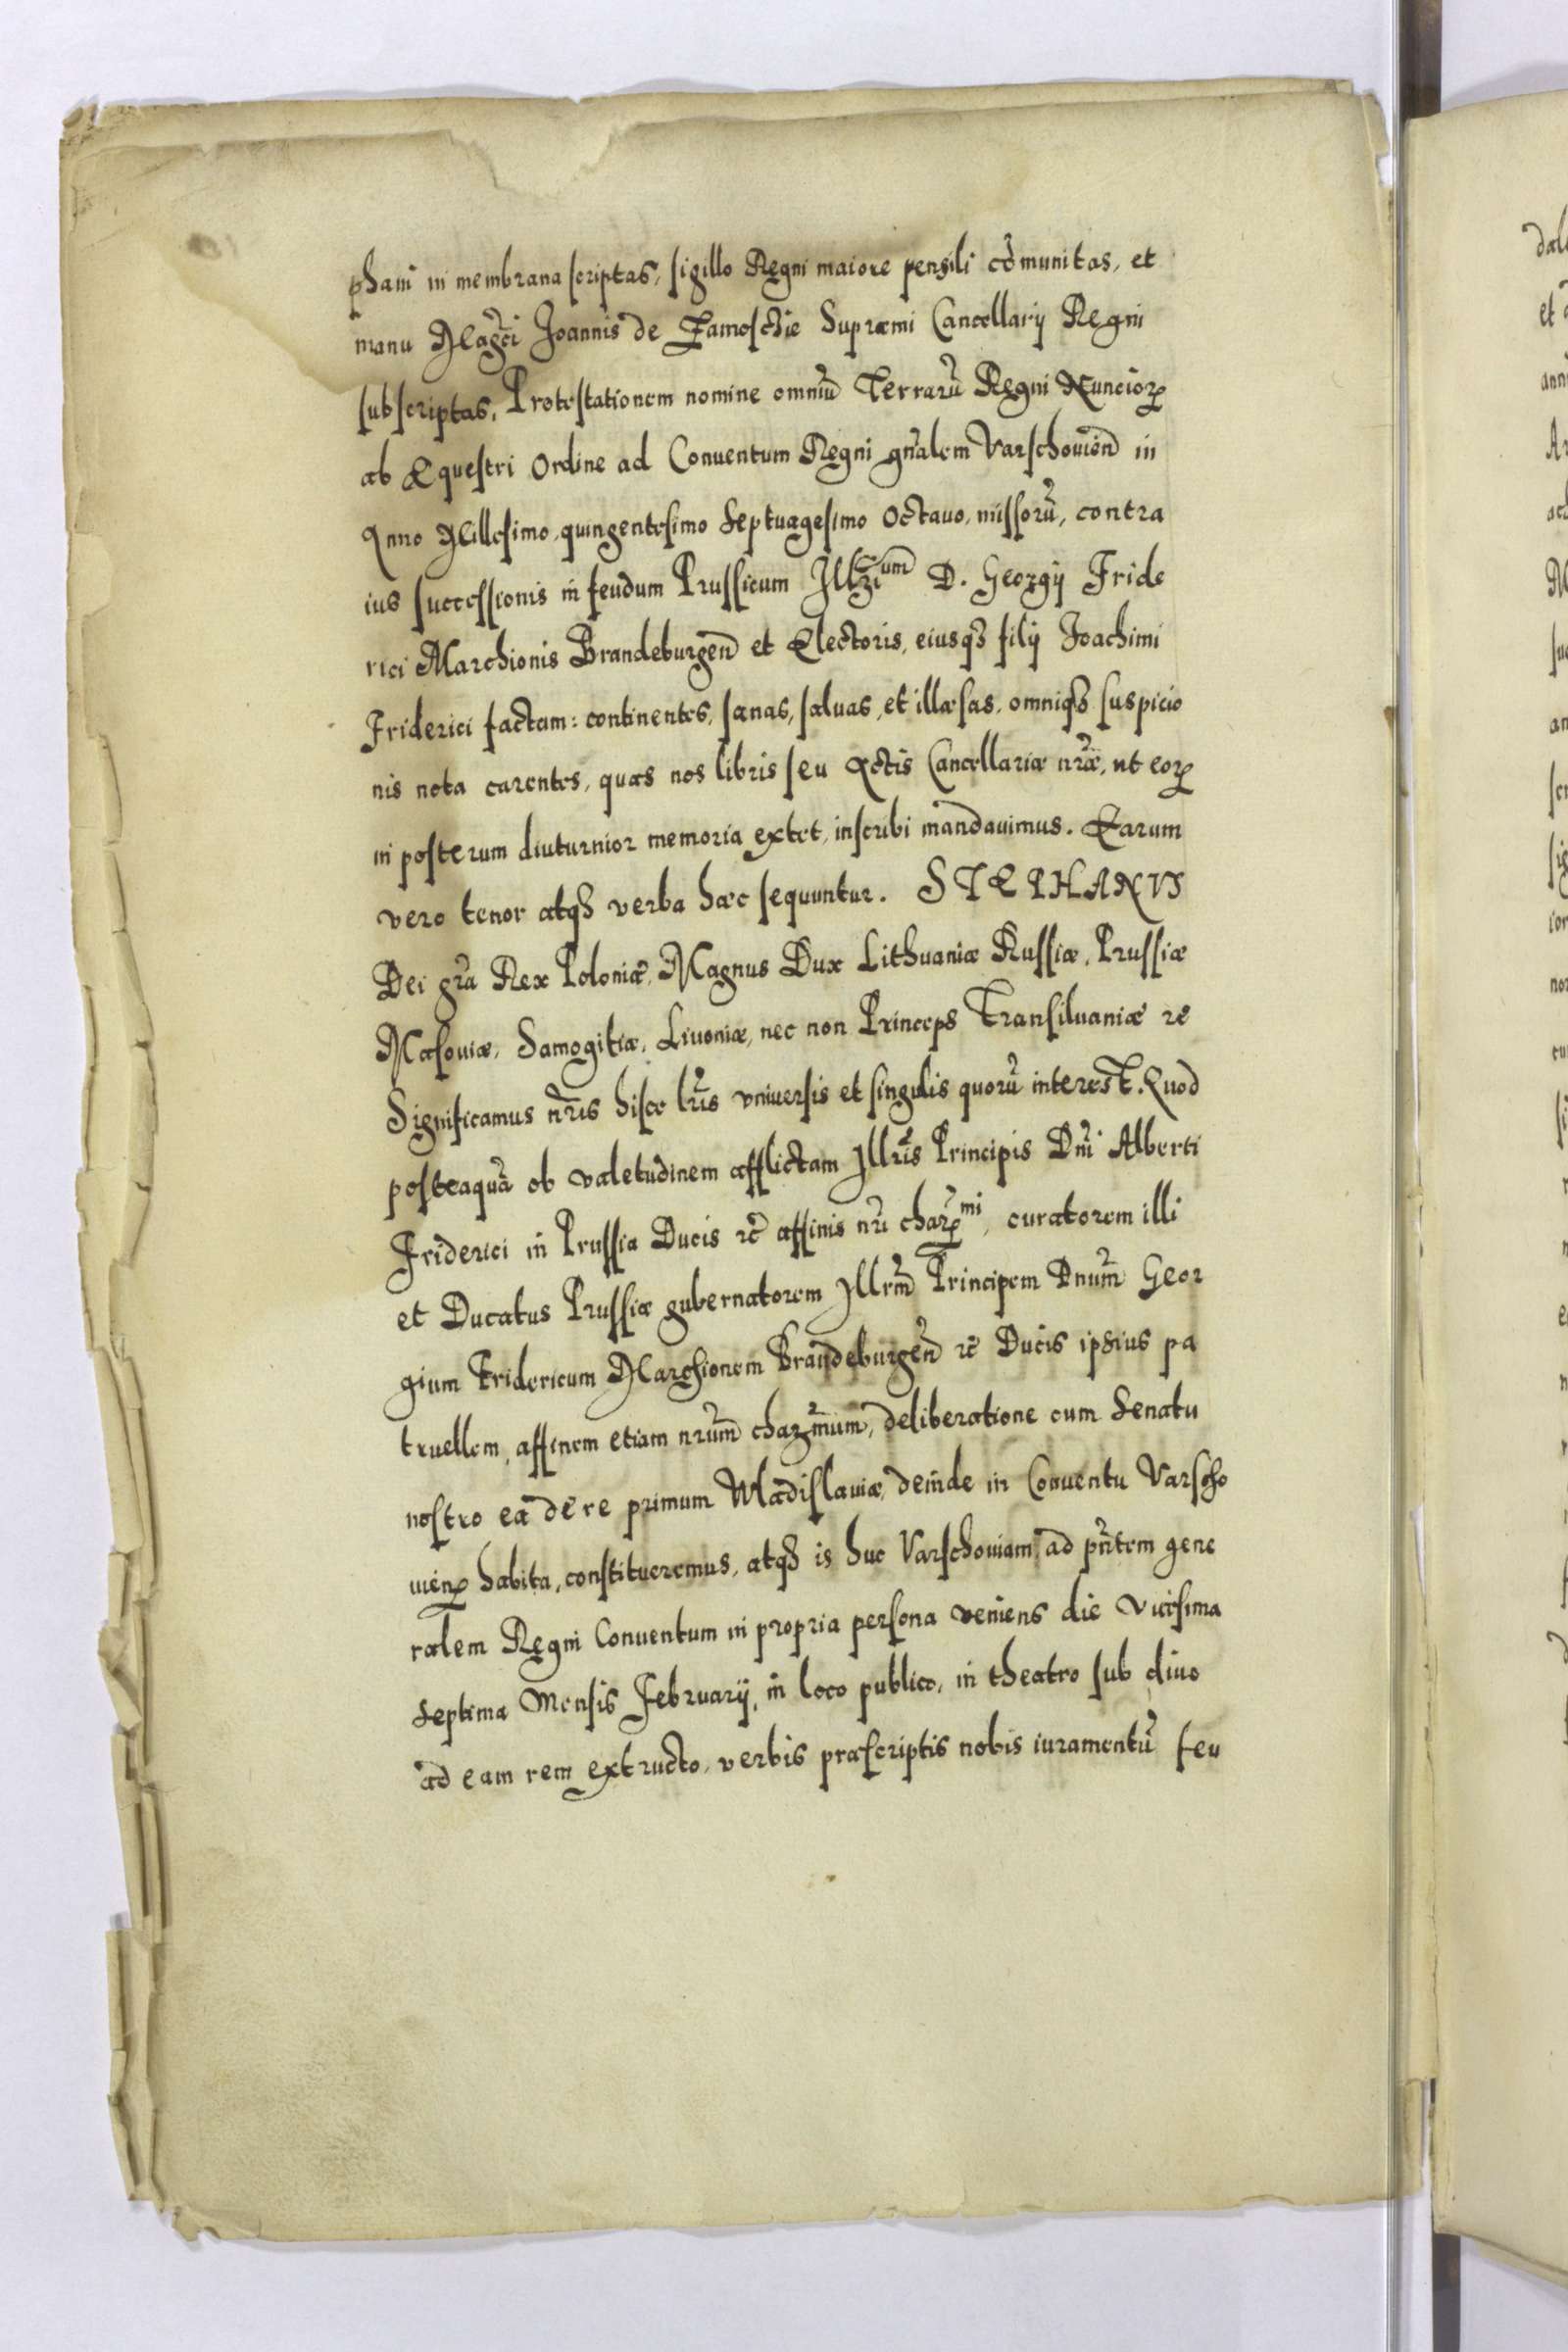 phani in membrana scriptas, sigillo Regni maiore pensili cõmunitas, et
manu Magci Joannis de Zamoschie Supræmi Cancellarij Regni
subscriptas, Protestationem nomine omniũ Terrarũ Regni Nuncioꝝ
ab Equestri Ordine ad Conuentum Regni gnalem Varschouien in
Anno Millesimo, quingentesimo septuagesimo Octauo, missorũ, contra
ius successionis in feudum Prussicum D. Georgij Fride
rici Marchionis Brandeburgen et Electoris, eiusqꝫ filij Joachimi
Friderici factam: continentes, sanas, saluas, et illæsas, omniqꝫ suspicio
nis nota carentes, quas nos libris seu Actis Cancellariæ nræ, ut eoꝝ
in posterum diuturnior memoria extet, inscribi mandauimus. Earum
vero tenor atqꝫ verba hæc sequuntur. STEPHANVS
Dei gra Rex Poloniæ, Magnus Dux Lithuaniæ Russiæ, Prussiæ
Masouiæ, Samogitiæ, Liuoniæ, nec non Princeps Transiluaniæ ꝛc
Significamus nris hisce lris vniuersis et singulis quorũ interest. Quod
posteaquã ob valetudinem afflictam Illris Principis Dni Alberti
Friderici in Prussia Ducis ꝛc affinis nri chaꝝmi, curatorem illi
et Ducatus Prussiæ gubernatorem Illrm Principem Dnum Geor
gium Fridericum Marchionem Brandeburgen ꝛc Ducis ipsius pa
truellem, affinem etiam nrum charmum, deliberatione cum Senatu
nostro ea de re primum Wladislauiæ, deinde in Conuentu Varscho
uienꝝ habita, constitueremus, atqꝫ is huc Varschouiam ad pntem gene
ralem Regni Conuentum in propria persona veniens die vicesima
septima Mensis Februarij, in loco publico, in theatro sub diuo
ad eam rem extructo, verbis præscriptis nobis iuramentũ seu